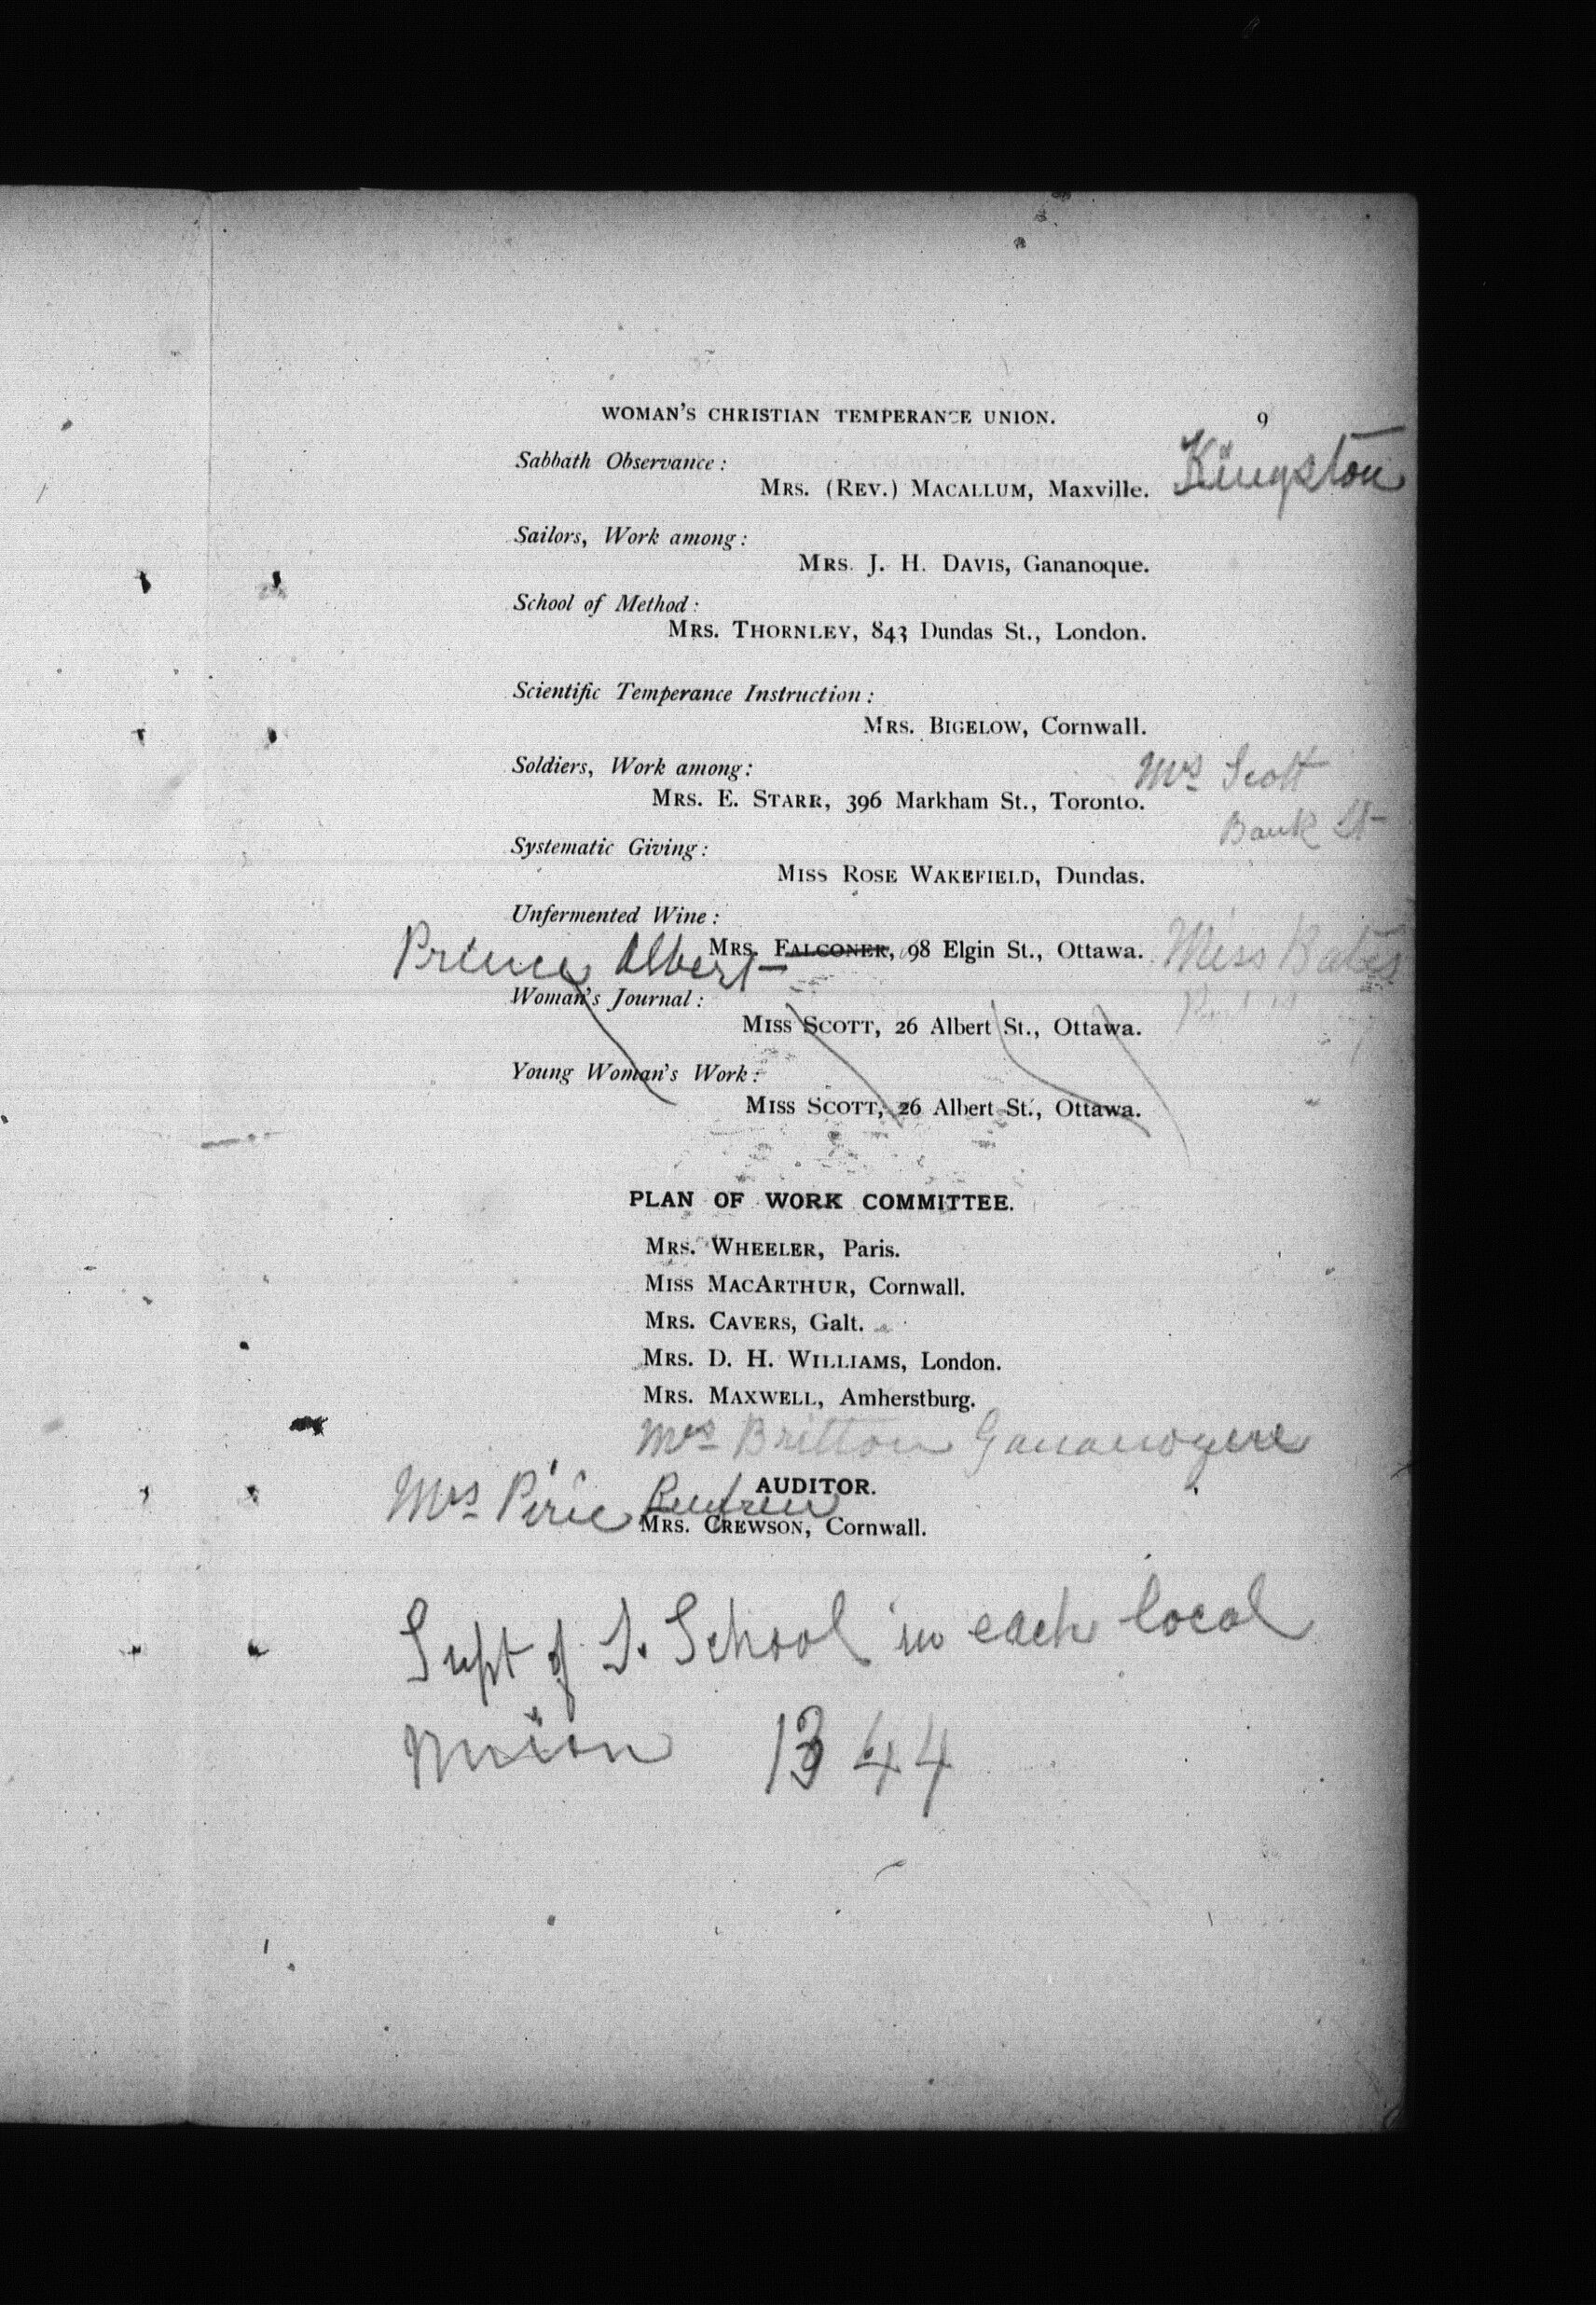 WOMAN'S CHRISTIAN TEMPERANCE UNION. 9
Sabbath Observance:
MRS. (REV.) MACALLUM, Maxville. Kingston
Sailors, Work among:
MRS. J. H. DAVIS, Gananoque.
School of Method:
MRS. THORNLEY, 843 Dundas St., London.
Scientific Temperance Instruction:
MRS. BIGELOW, Cornwall.
Soldiers, Work among: Mrs Scott
MRS. E. STARR, 396 Markham St., Toronto.
Bank St
Systematic Giving:
MISS ROSE WAKEFIELD, Dundas.
Unfermented Wine:
MRS. FALCONER, 98 Elgin St., Ottawa. Miss Bates
Prince Albert
Woman's Journal:
MISS SCOTT, 26 Albert St., Ottawa.
Young Woman's Work:
MISS SCOTT, 26 Albert St., Ottawa.
PLAN OF WORK COMMITTEE.
MRS. WHEELER, Paris.
MISS MACARTHUR, Cornwall.
MRS. CAVERS, Galt.
MRS. D. H. WILLIAMS, London.
MRS. MAXWELL, Amherstburg.
Mrs Britton Gananoque
AUDITOR.
Mrs Pirie Renfrew
MRS. CREWSON, Cornwall.
Supt of S. School in each local
Union 1344